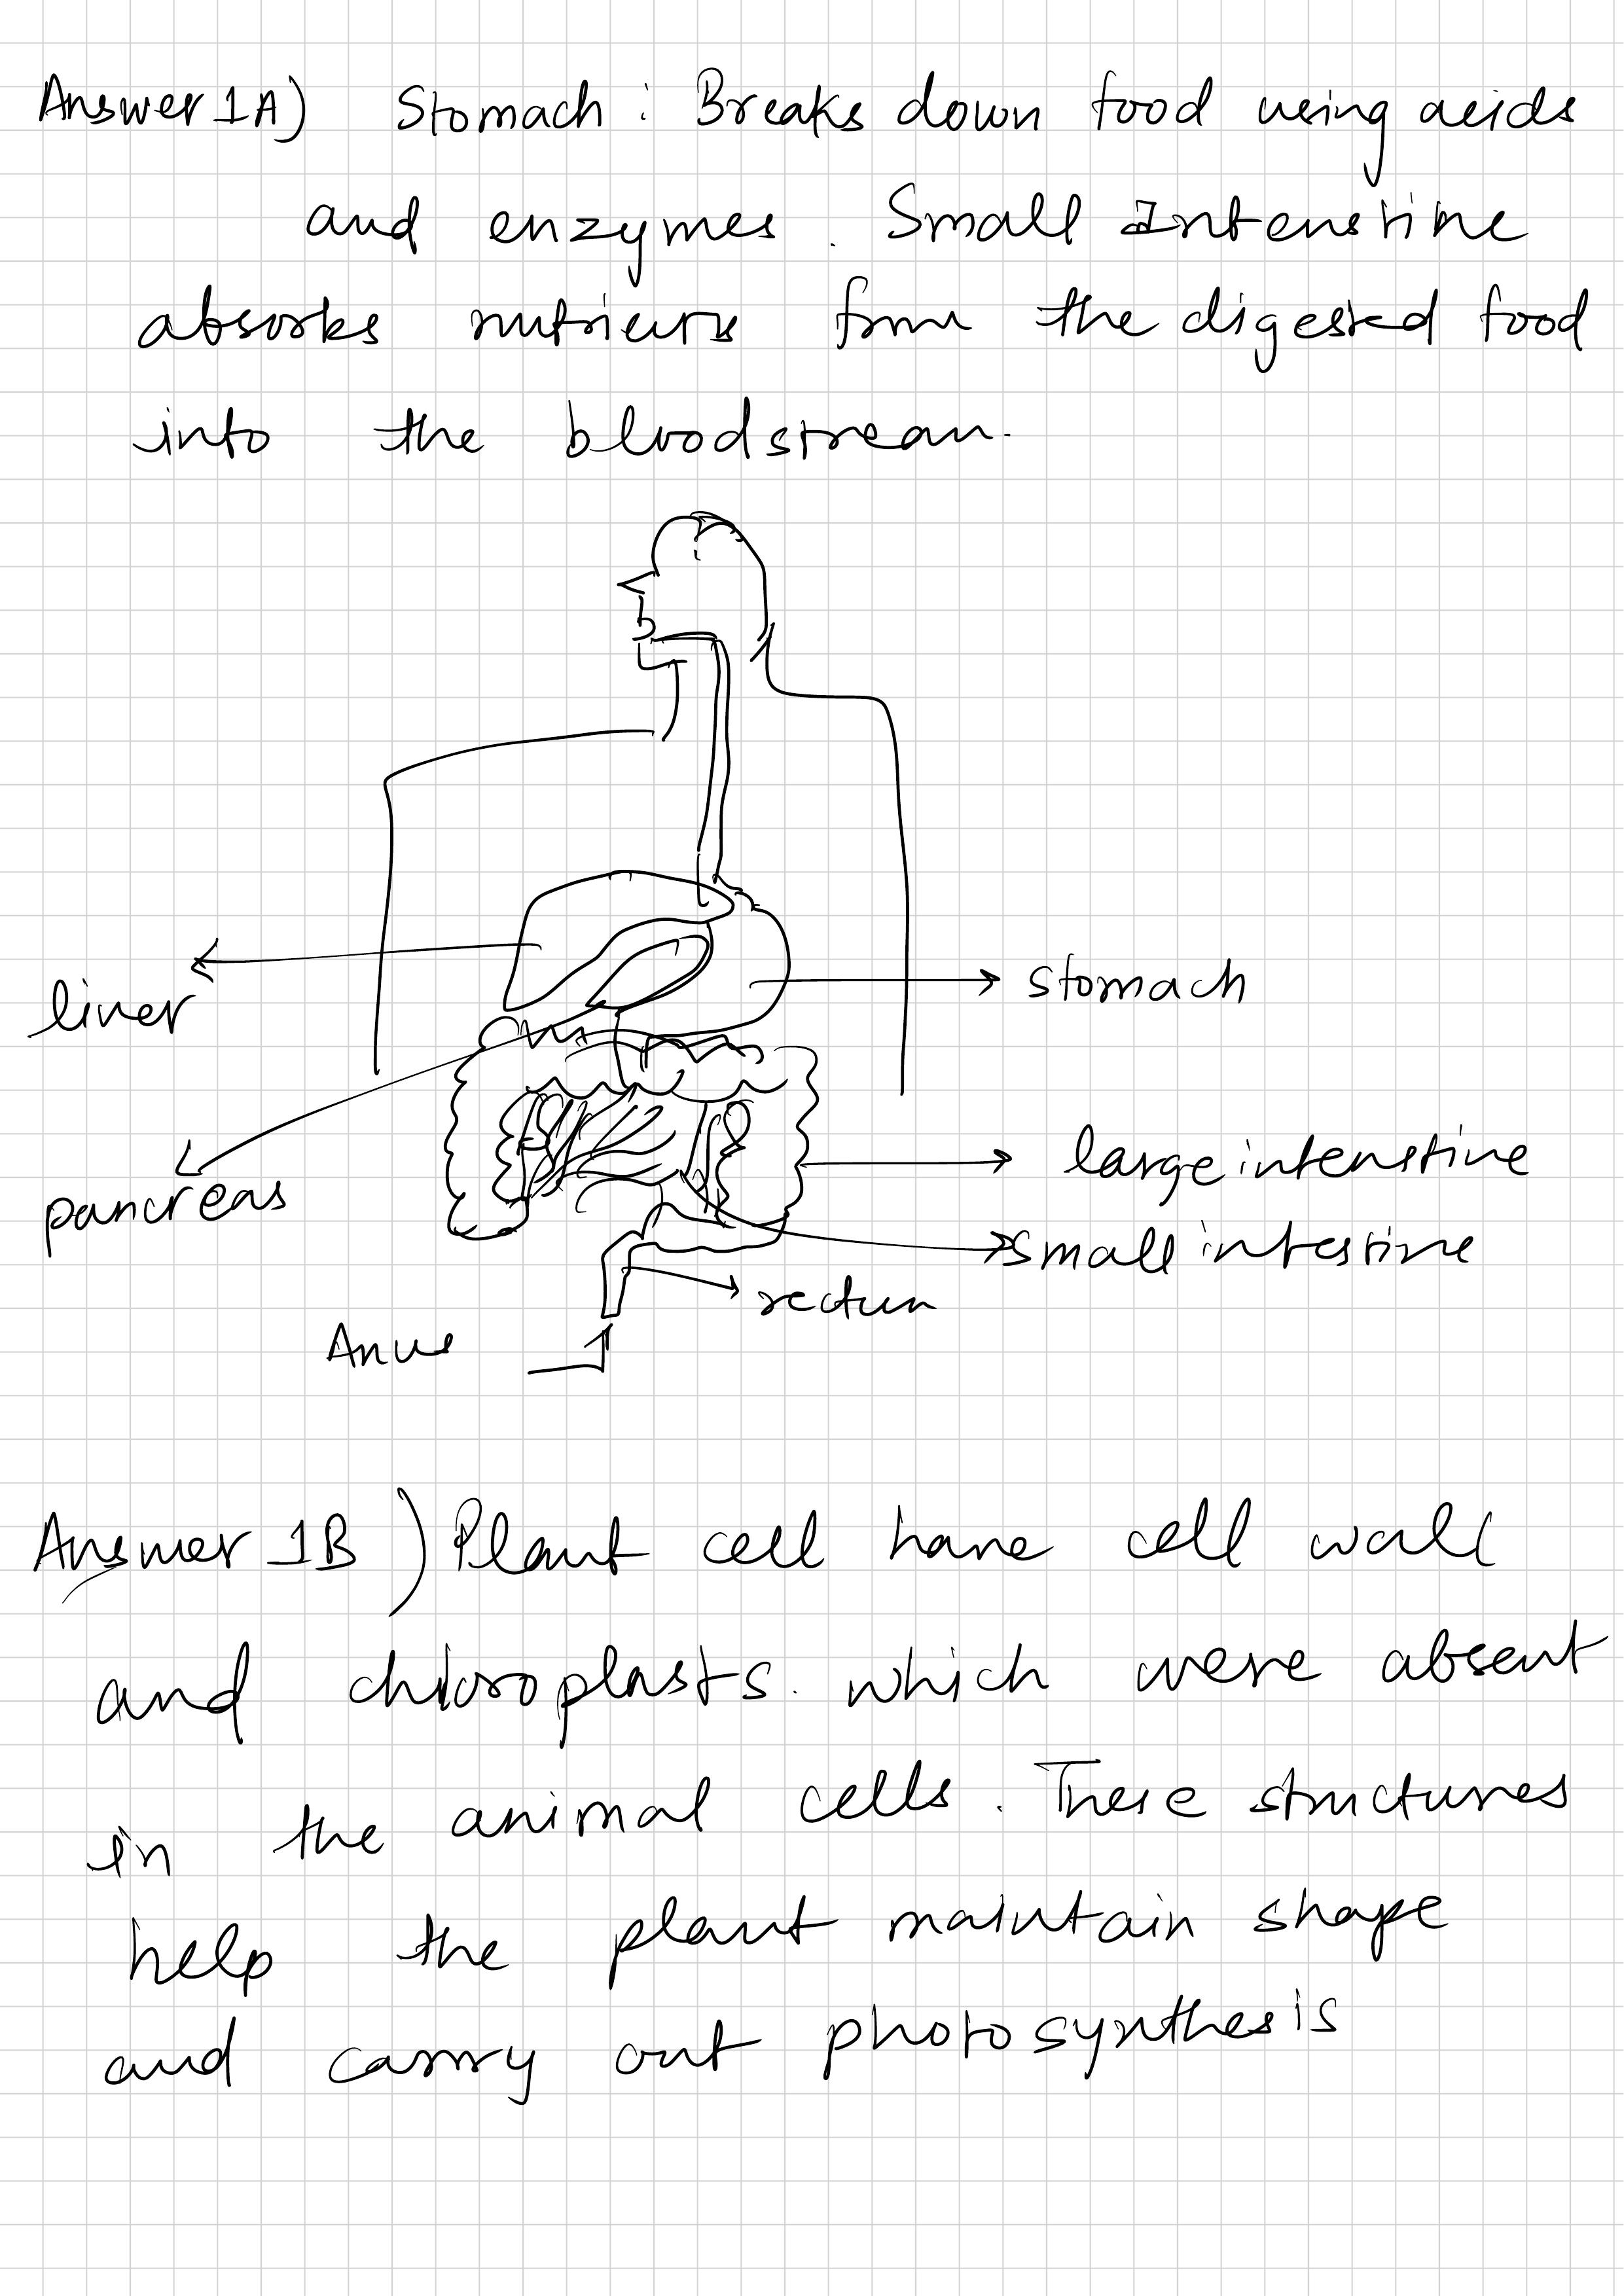 Answer 1A) Stomach : Breaks down food using acids
and enzymes. Small Intenstine
absorbs nutrients from the digested food
into the bloodstream.
liver
stomach
pancreas
large intenstine
small intestine
rectum
Anus
Answer 1B) Plant cell have cell wall
and chloroplasts. which were absent
in the animal cells. These structures
help the plant maintain shape
and carry out photosynthesis